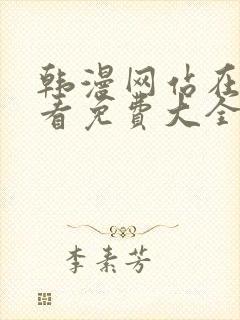 韩漫网站在
看免费大全
李素芳